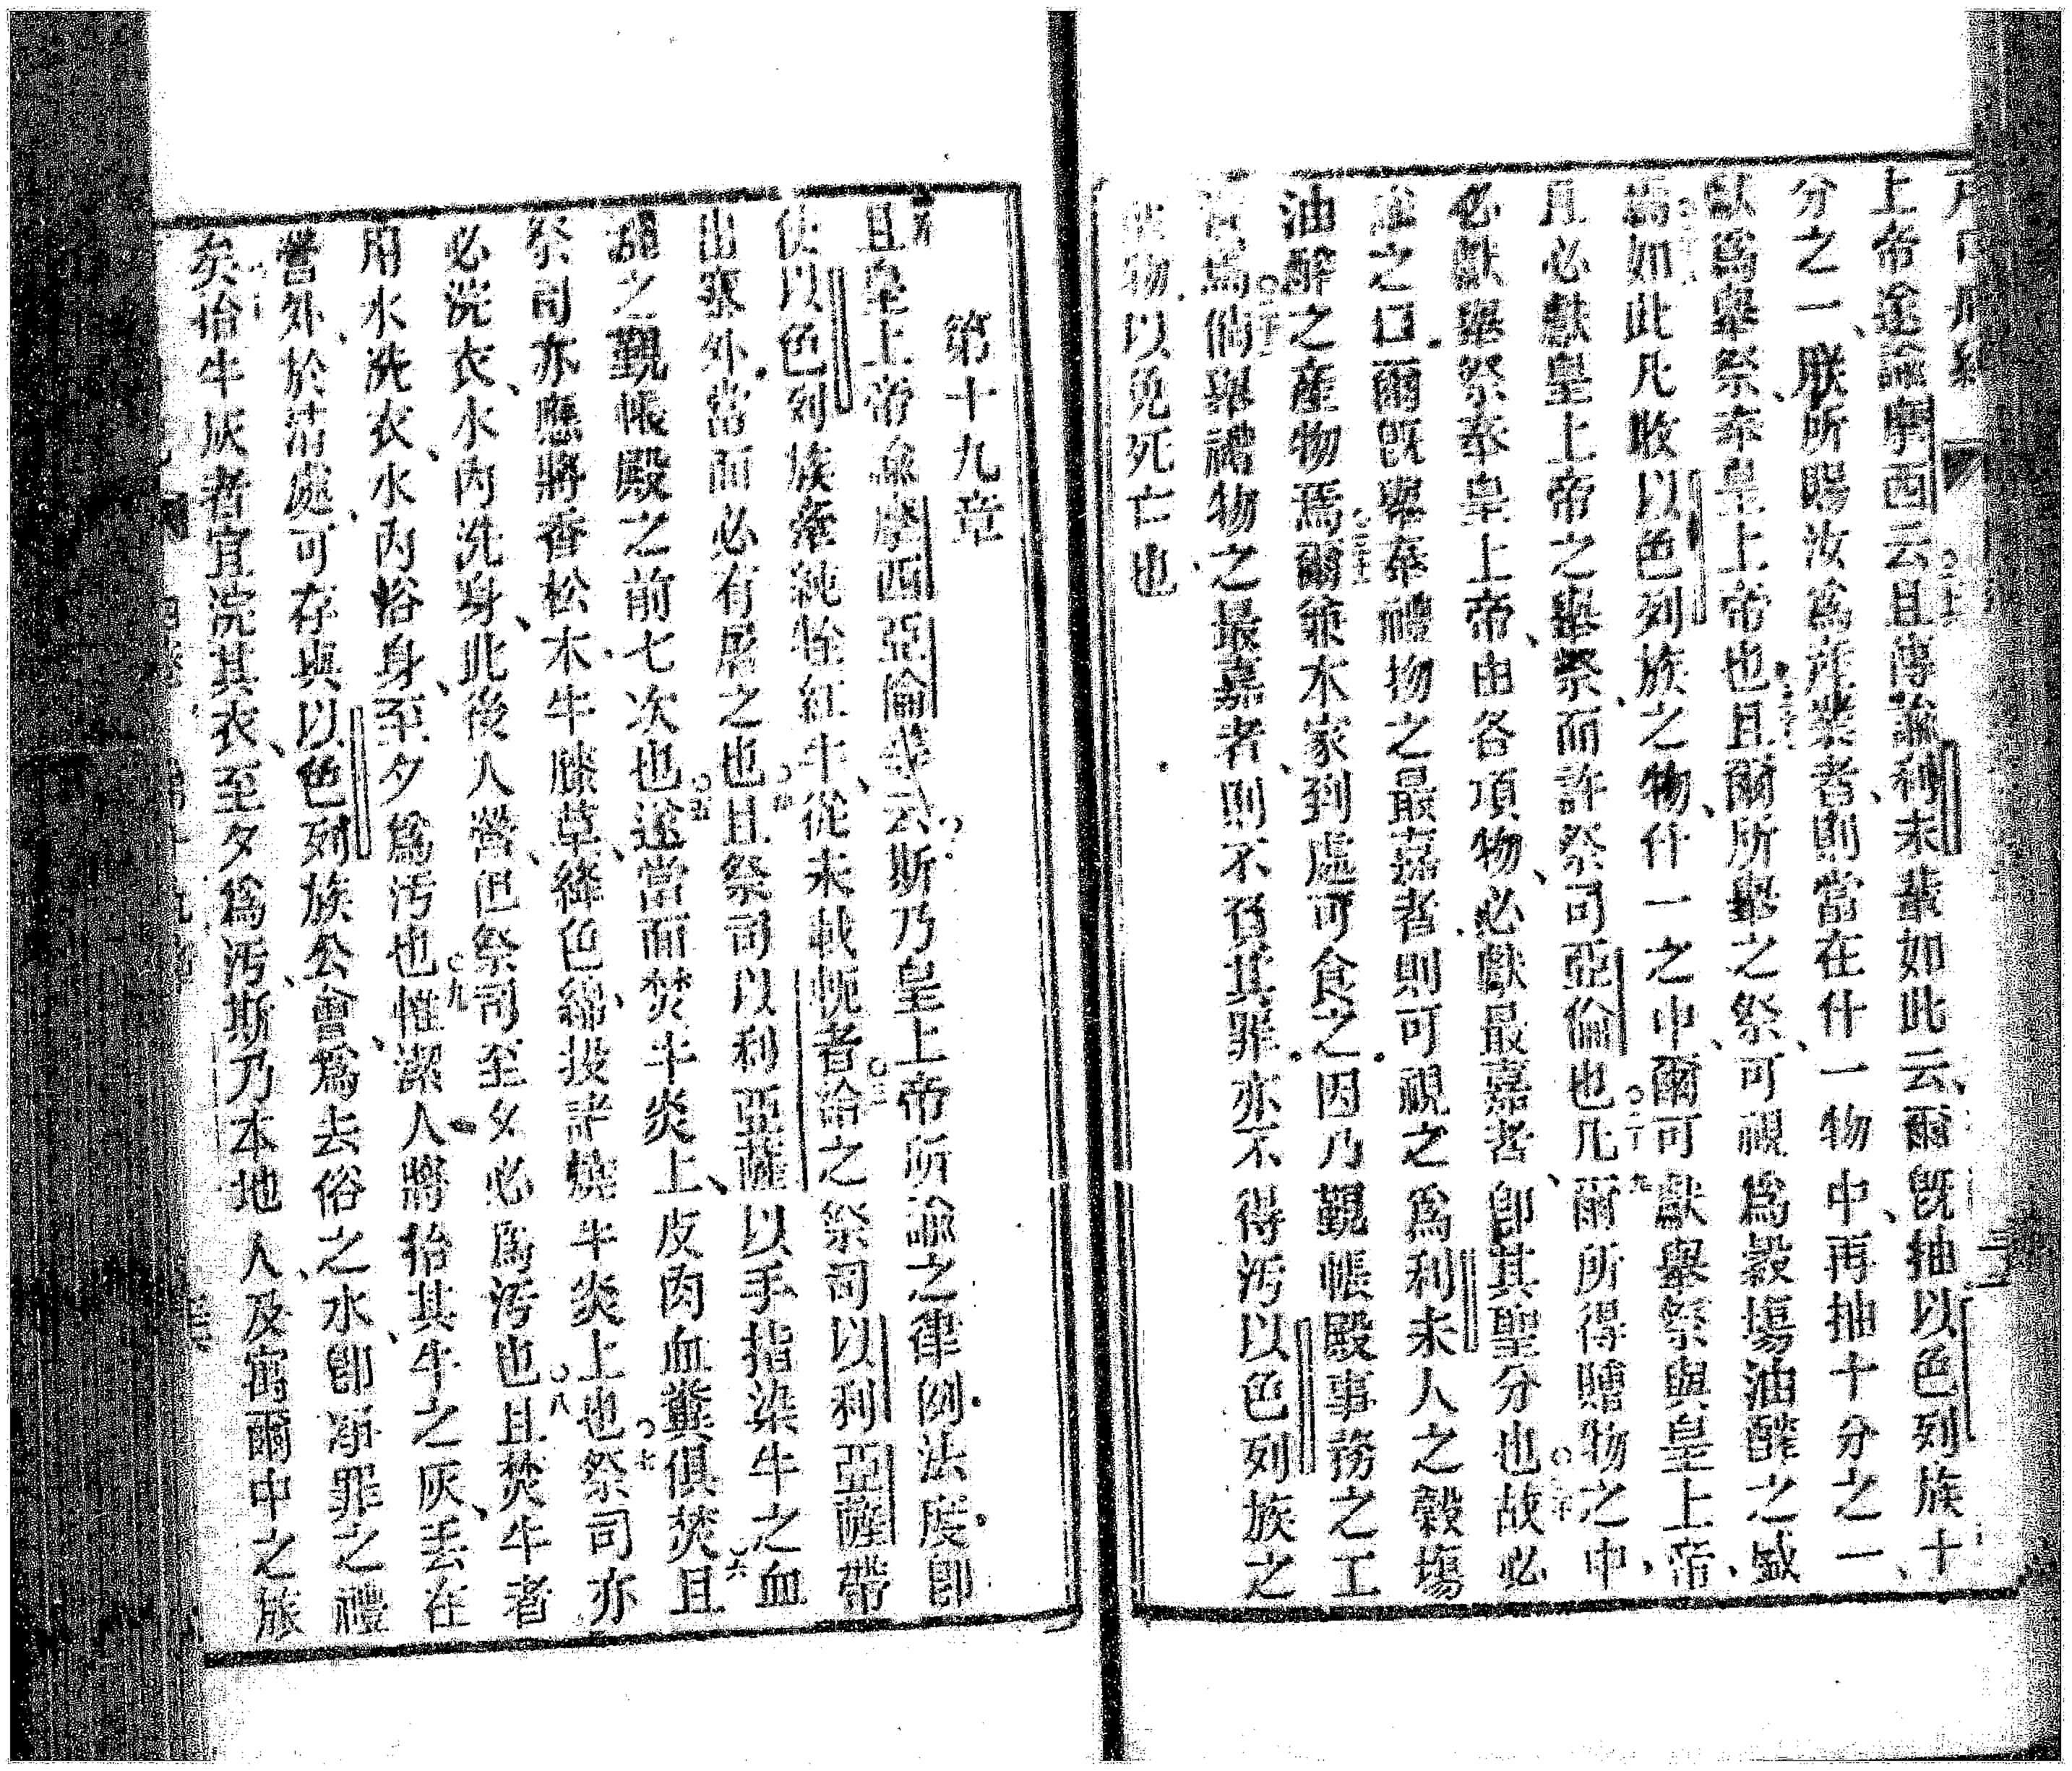 上帝遂諭摩西云且傳諭利未輩如此云爾旣抽以色列族十
分之一、朕所賜汝爲產業者、則當在什一物中、再抽十分之一、
獻爲舉祭、奉皇上帝也且爾所舉之祭、可視爲穀塲油醡之盛
焉如此凡收以色列族之物、什一之中、爾可獻舉祭與皇上帝、
且必獻皇上帝之舉祭、而許祭司亞倫也凡爾所得贈物之中、
必獻舉祭奉皇上帝、由各項物、必獻最嘉者、卽其聖分也故必
之曰爾旣舉奉禮物之最嘉者、則可視之爲利未人之穀塲
油醡之產物焉爾兼本家到處可食之、因乃覲帳殿事務之工
爲倘舉禮物之最嘉者、則不負其罪、亦不得汚以色列族之
物、以免死亡也
第十九章
且皇上帝諭摩西亞倫等云斯乃皇上帝所諭之律例法度、卽
使以色列族牽純牷紅牛、從未載軛者給之祭司以利亞薩帶
出寨外、當面必有屠之也且祭司以利亞薩、以手指染牛之血
灑之覲帳殿之前七次也遂當面焚牛炎上、皮肉血糞俱焚且
祭司亦應將香松木、牛膝草、絳色綿、投諸燒牛炎上也祭司亦
必浣衣、水內洗身、此後人營、但祭司至夕必爲汚也且焚牛者
用水洗衣、水內浴身、至夕爲汚也惟潔人將抬其牛之灰、丟在
營外、於清處、可存與以色列族公會、爲去俗之水、卽凈罪之禮
矣抬牛灰者宜浣其衣、至夕爲汚、斯乃本地人、及寓爾中之旅